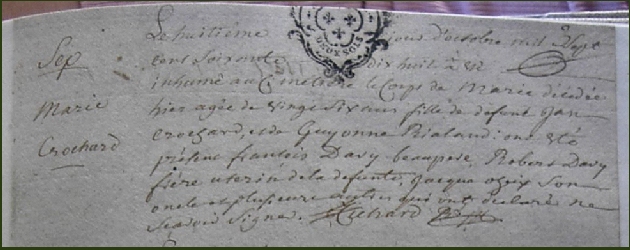 Sep
Marie
Crochard
Le huitième jour d'octobre mil Sept
cent Soixante dix huit à été
inhumé au Cimetiere le Corps de Marie décédée
hier agée de vingt Six ans fille de defunt Jan
crochard, et de Guyonne Rialand; ont été
présents francois Davy beaupere, Robert Davy
frère uterin de la defunte, Jacque Son
oncle et plusieurs autres qui ont declaré ne
Scavoir Signer.
DEUX SOLS